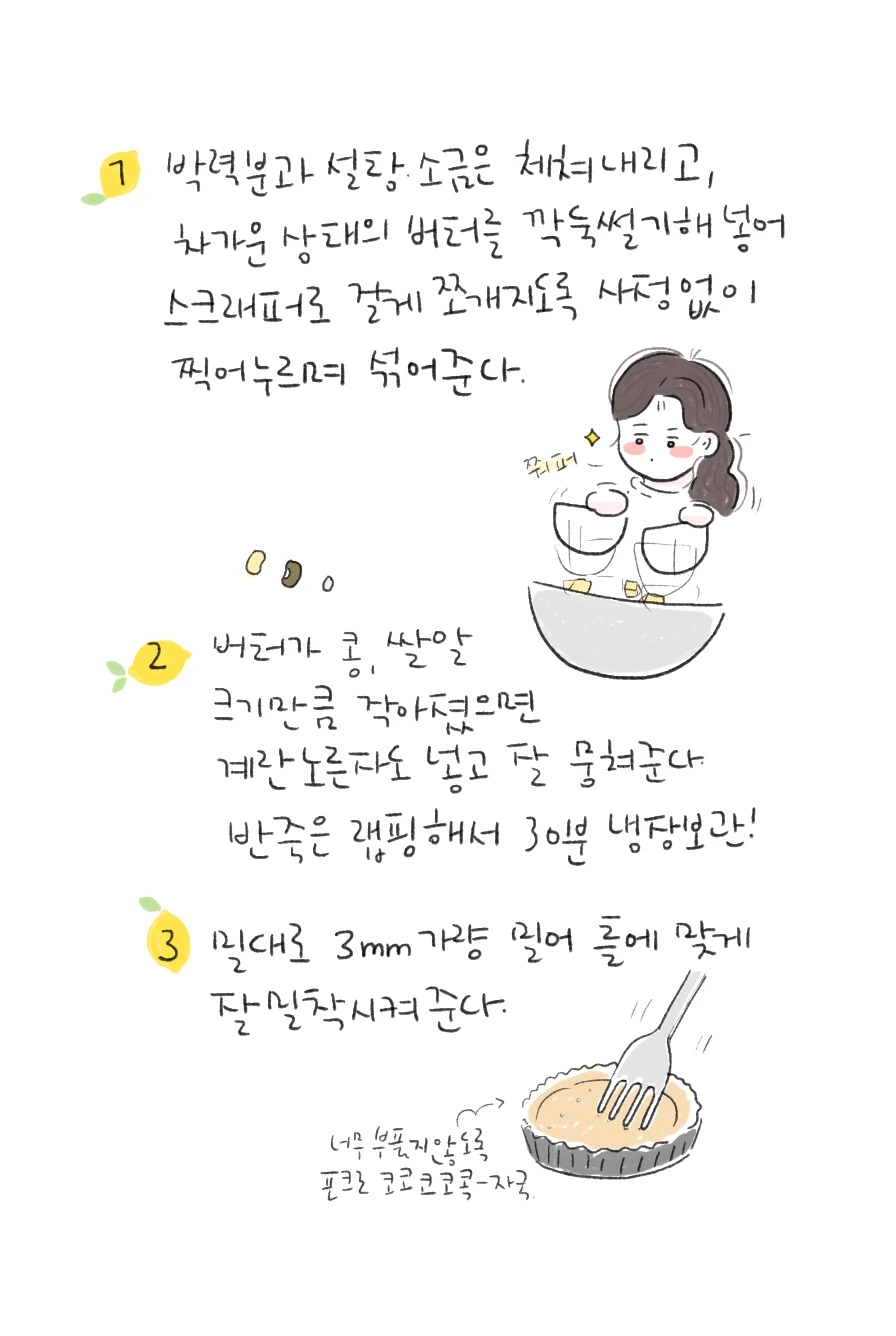 1 박력분과 설탕.소금은 체쳐내리고,
차가운 상태의 버터를 깍둑썰기해 넣어
스크래퍼로 잘게 쪼개지도록 사정없이
찍어누르며 섞어준다.
2 버터가 콩, 쌀알
크기만큼 작아졌으면
계란노른자도 넣고 잘 뭉쳐준다.
반죽은 랩핑해서 30분 냉장보관!
3 밀대로 3mm가량 밀어 틀에 맞게
잘밀착시켜준다.
너무 부풀지않도록
포크로 코코코코콕-자국.